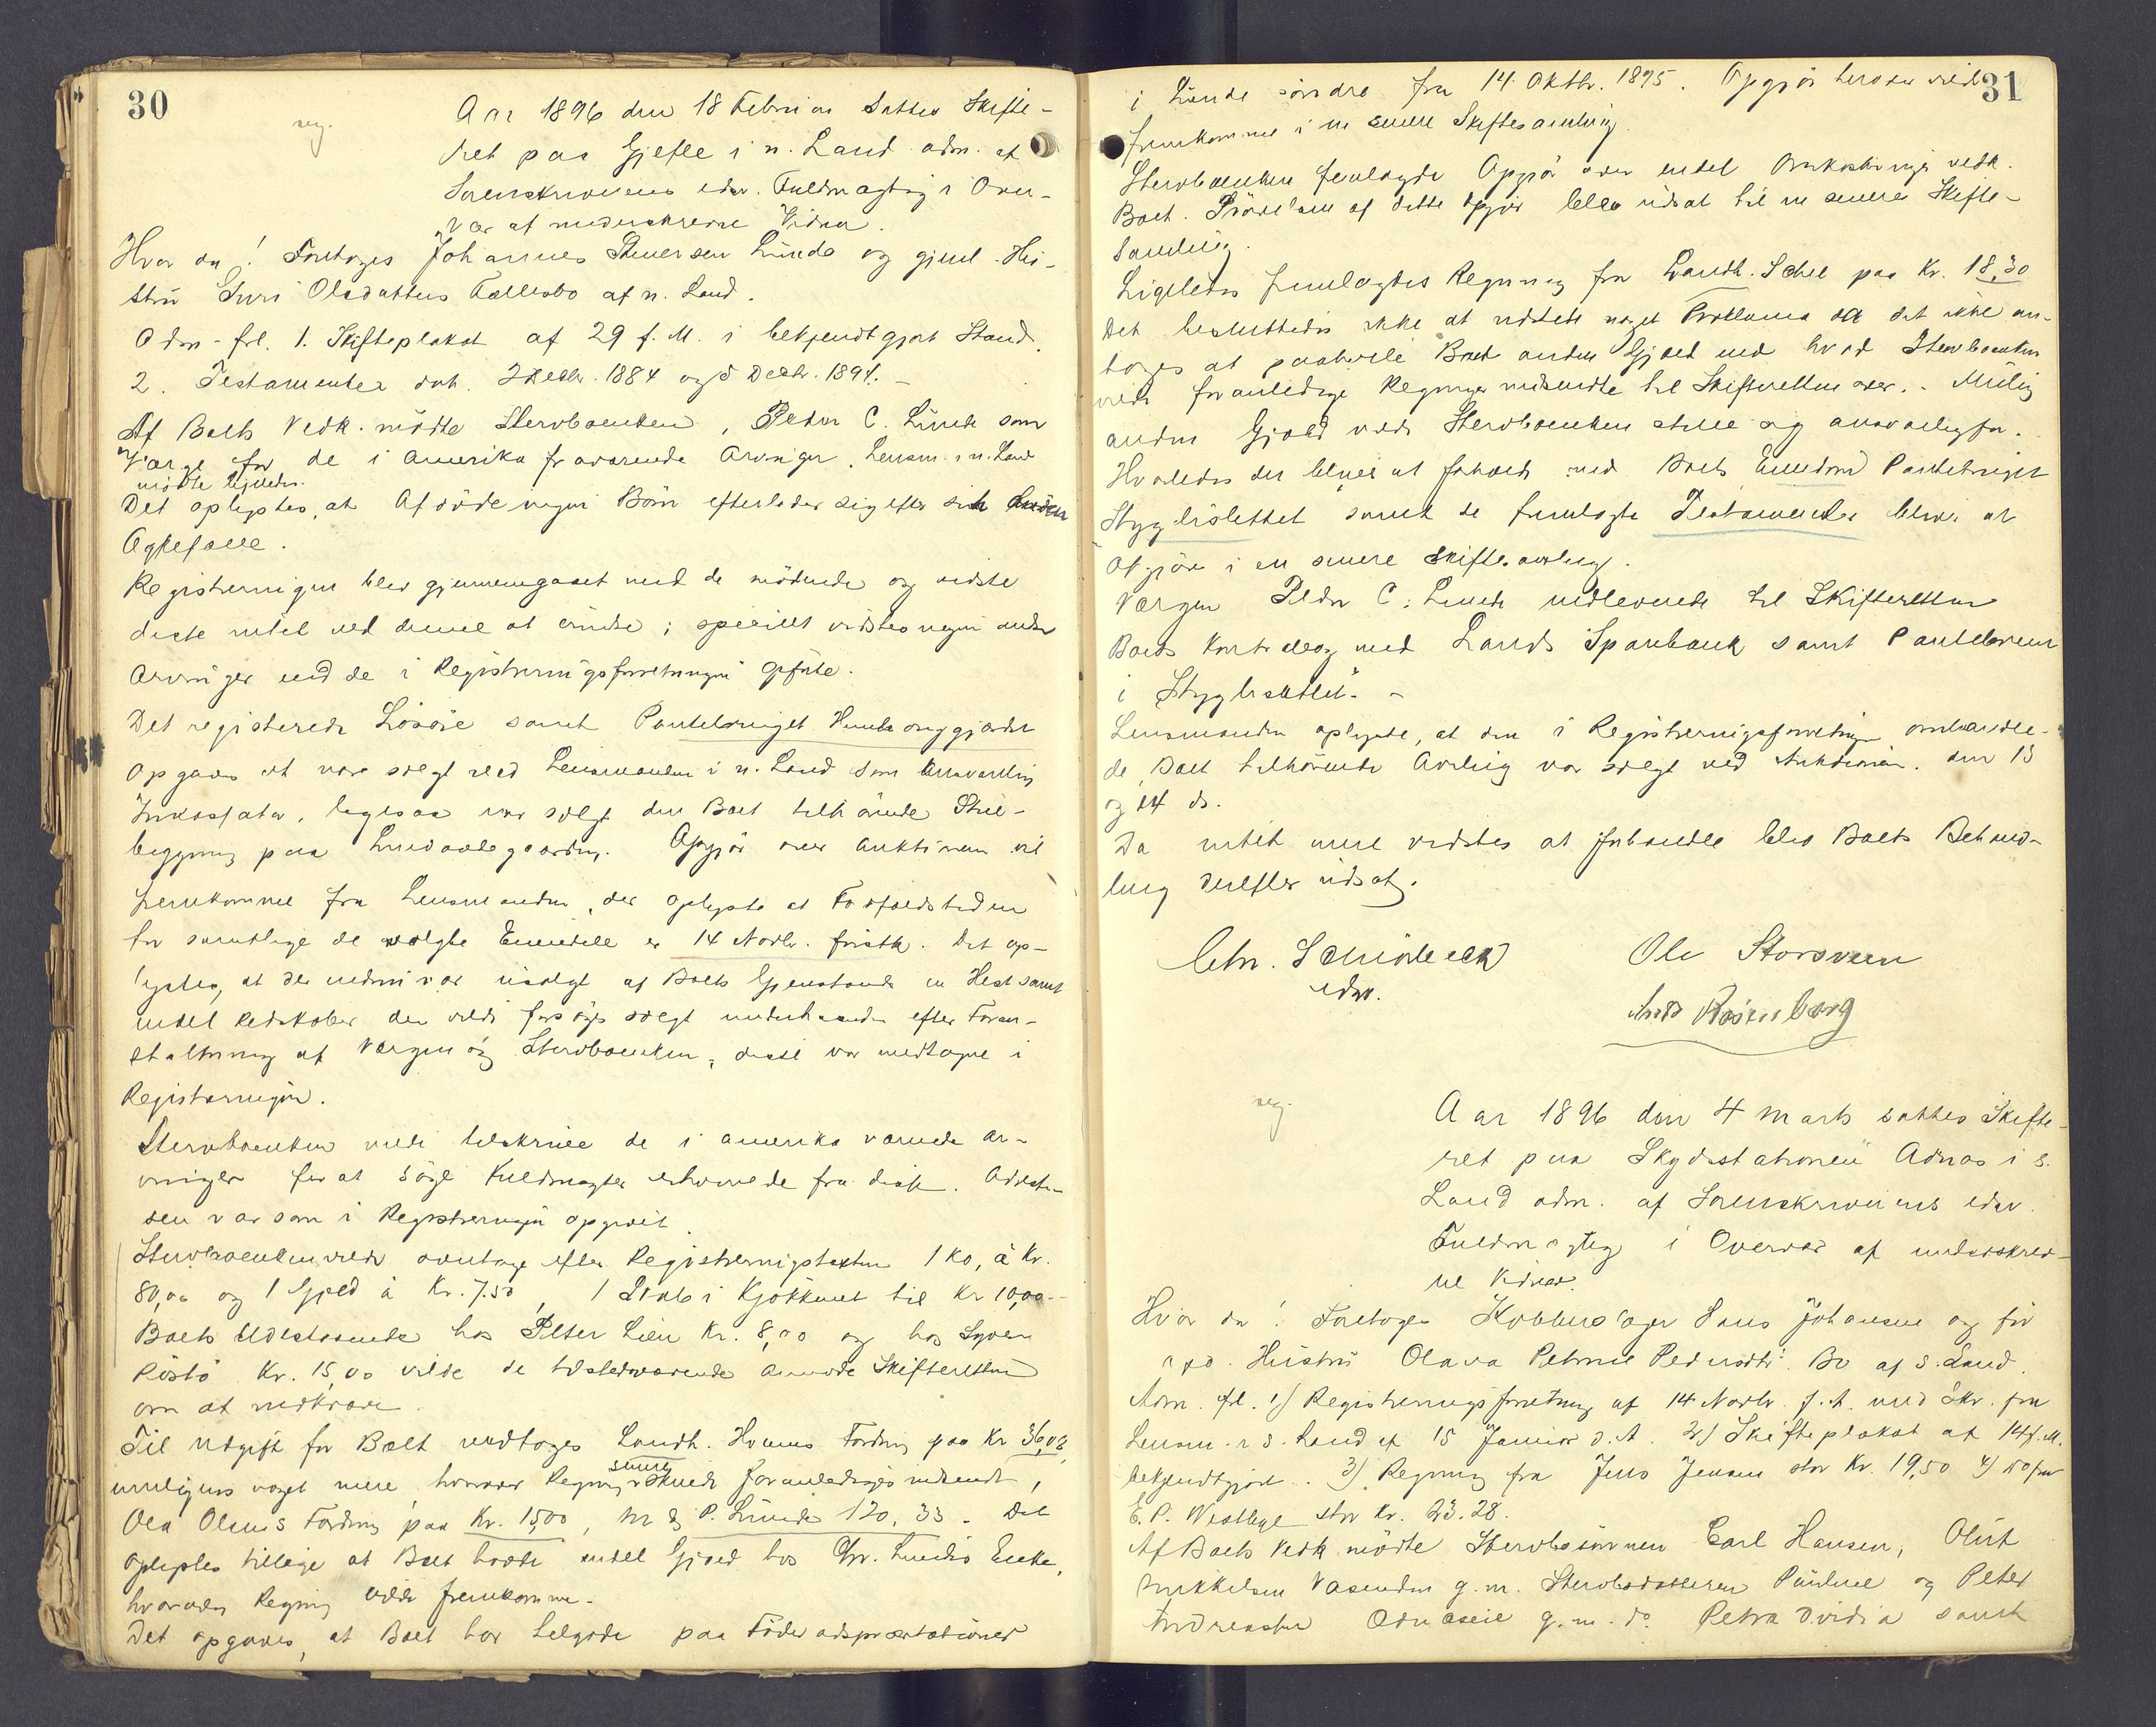 30
reg.
Aar 1896 den 18 Februar sattes Skifte-
ret paa Gjefle i n. Land adm. af
Sorenskriverens edsv. Fuldmægtig i Over-
vær af underskrevne Vidner.
Hvor da! Foretoges Johannes Stenersen Lunde og gjenl. Hu-
stru Guri Olsdatters Fællesbo af n. Land.
Adm. frl. 1. Skifteplakat af 29 f. M. i bekjendtgjort Stand.
2. Testamenter dat. 2 Decbr. 1884 og 5 Decbr. 1894. -
Af Boets Vedk. mødte Stervboenken, Peder C. Lunde som
Værge for de i Amerika fraværende Arvinger. Lensm. i n. Land
mødte ligeledes.
Det oplystes, at Afdøde ingen Børn efterlader sig efter sin
Ægtefælle.
Registreringen blev gjennemgaaet med de mødende og vidste
disse intet ved denne at erindre; specielt vidstes ingen andre
Arvinger end de i Registreringsforretningen opførte.
Det registrerede Løsøre samt Pantebrevet
opgaves at være solgt ved Lensmanden i n. Land som ansvarlig
Inkassator, ligesaa var solgt den Boet tilhørende
bygning paa. Opgjør over Auktionen vil
fremkomme fra Lensmanden, der oplyste at Forfaldstiden
for samtlige de solgte Eiendele er 14 Novbr. førstk. Det op-
lystes, at der endnu var usolgt af Boets Gjenstande en Hest samt
endel Redskaber der vilde forsøges solgt underhaanden efter Foran-
staltning af Værgen og Stervboenken, disse var medtagne i
Registreringen.
Stervboenken vilde tilskrive de i Amerika værende Ar-
vinger for at søge Fuldmagter erhvervede fra disse. Adres-
sen var som i Registreringen opgivet.
Stervboenken vilde overtage efter Registreringstaxten 1 Ko, à Kr.
80,00 og 1 Gjeld à Kr. 7.50, 1 i Kjøkkenet til Kr 10,00.-
Boets Udestaaende hos Peter Lien Kr. 8,00 og hos
Røstø Kr. 15,00 vilde de tilstedeværende anmode Skifteretten
om at indkræve.
Til Udgift for Boet vedtoges Landh. Fordring paa Kr 36,02,
muligens noget mere, hvorover Regning senere foranlediges indsendt,
Ola Olsens Fordring paa Kr. 15,00, P. Lunde 120,33. - Det
oplystes tillige at Boet havde endel Gjæld hos Chr. Lundes Enke,
hvorover Regning vilde fremkomme.
Det opgaves, at Boet har tilgode paa Føderaadspræstationer
31
i Lunde søndre fra 14 Oktbr. 1895. Opgjør herover vilde
fremkomme i en senere Skiftesamling.
Stervboenken fremlagde Opgjør over endel Omkostninger vedk.
Boet. Prøvelsen af dette Opgjør blev udsat til en senere Skifte-
samling.
Ligeledes fremlagdes Regning fra Landh. Schee paa Kr. 18,30
Det besluttedes ikke at udstede noget Proklama da det ikke an-
toges at paahvile Boet anden Gjæld end hvad Stervboenken
vilde foranledige Regninger indsendte til Skifteretten over. - Mulig
anden Gjæld vilde Stervboenken stille sig ansvarlig for.
Hvorledes der bliver at forholde med Boets Eiendom Pantebrevet
samt de fremlagte Testamenter bliver at
afgjøre i en senere Skiftesamling.
Værgen Peder C. Lunde indleverede til Skifteretten
Boets Kontrabog med Lands Sparebank samt Pantebrevet
i
Lensmanden oplyste, at den i Registreringsforretningen omhandle-
de, Boet tilhørende Avling var solgt ved Auktionen den 13
og 14 ds.
Da intet mere vidstes at forhandle blev Boets Behand-
ling derefter udsat.
Chr. Schiørbeck
edsv.
Ole Storsveen
Rosenberg
reg.
Aar 1896 den 4 Marts sattes Skifte-
ret paa Skydsstationen Adnas i s.
Land adm. af Sorenskriverens edsv.
Fuldmægtig i Overvær af underskrev-
ne Vidner.
Hvor da! Foretoges Kobberslager Hans Johansen og før
afd. Hustru Olava Petrine Pedersdtr. Bo af s. Land.
Adm. frl. 1) Registreringsforretning af 14 Novbr. f. A. med Skr. fra
Lensm. i s. Land af 15 Januar d. A. 2) Skifteplakat af 14 f. M.
bekjendtgjort. 3) Regning fra Jens Jensen stor Kr. 19,50 4) Do fra
E. P. Westbye stor Kr. 23.28.
Af Boets Vedk. mødte Stervbosønnen Carl Hansen, Oluf
Mikkelsen Vasenden g. m. Stervbodatteren Pauline og Peter
Andreassen Odnæseie g. m. do. Petra Ovidia samt